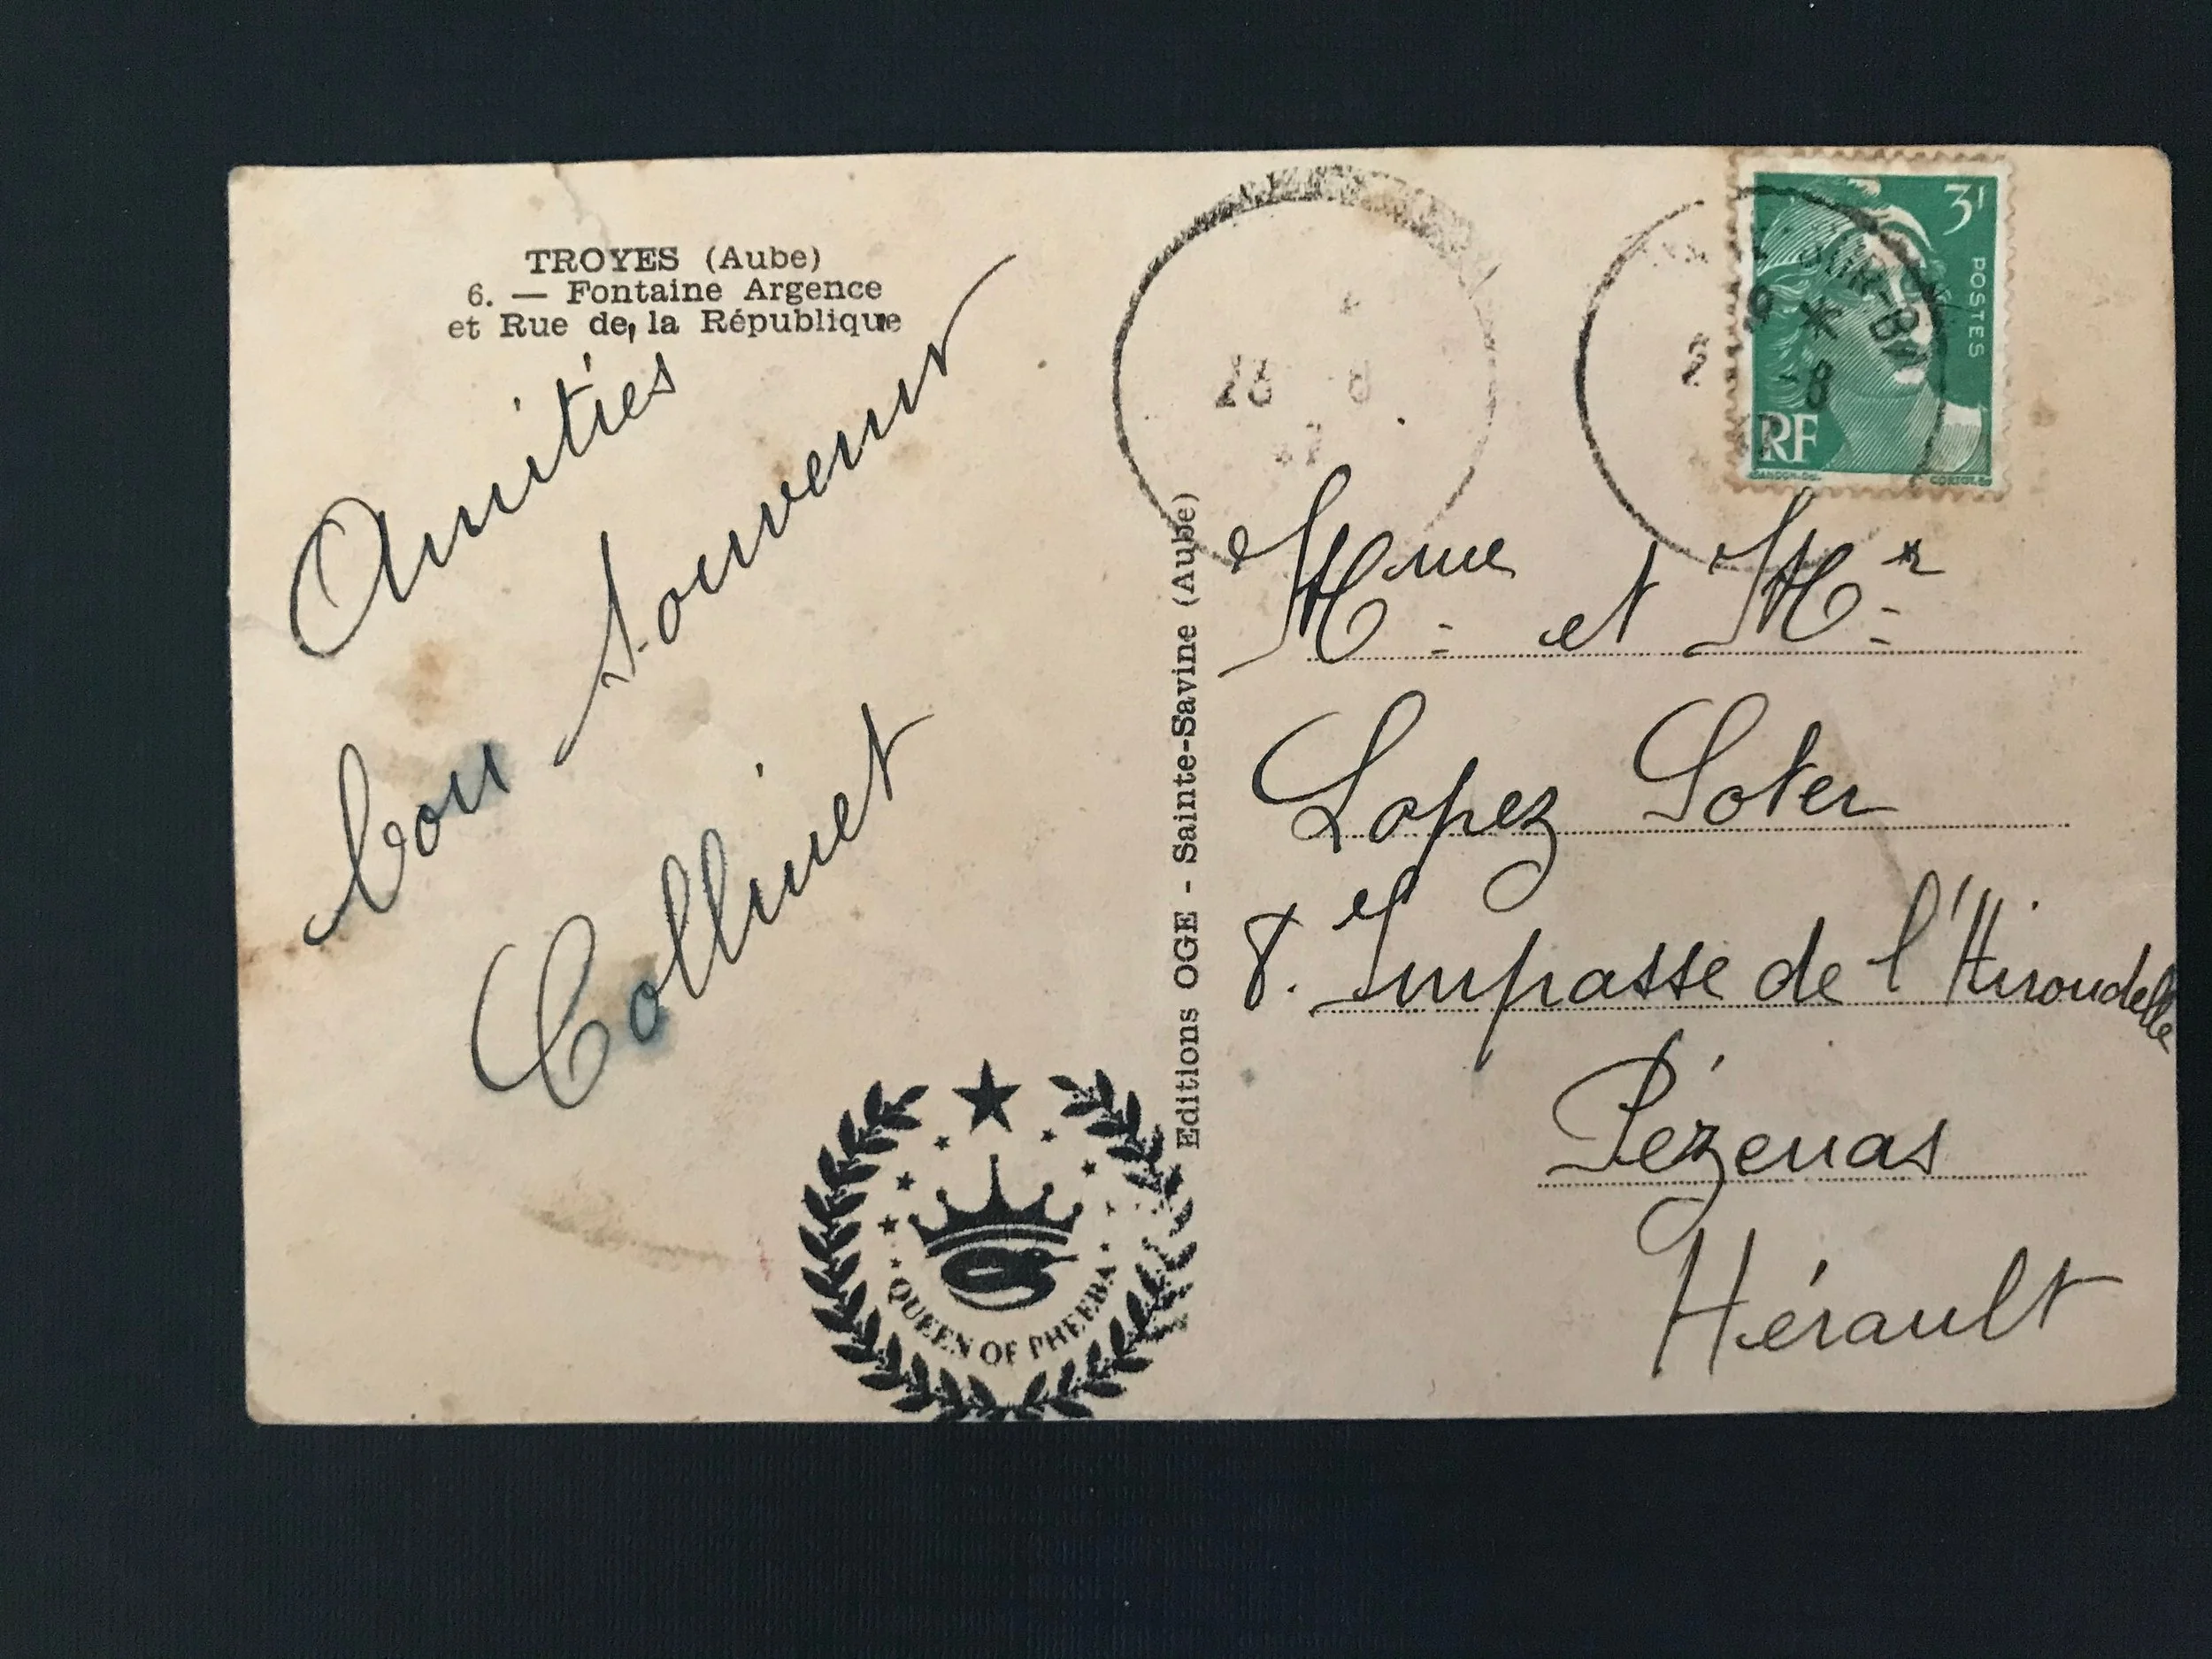 TROYES (Aube)
6. — Fontaine Argence
et Rue de la République
Amitiés
bon Souvenir
Collinet
Editions OGE - Sainte-Savine (Aube)
28 8
3f
POSTES
RF
-8
Mme et Mr
Lopez Soter
8. Impasse de l'Hirondelle
Pézenas
Hérault
QUEEN OF PHEEBA